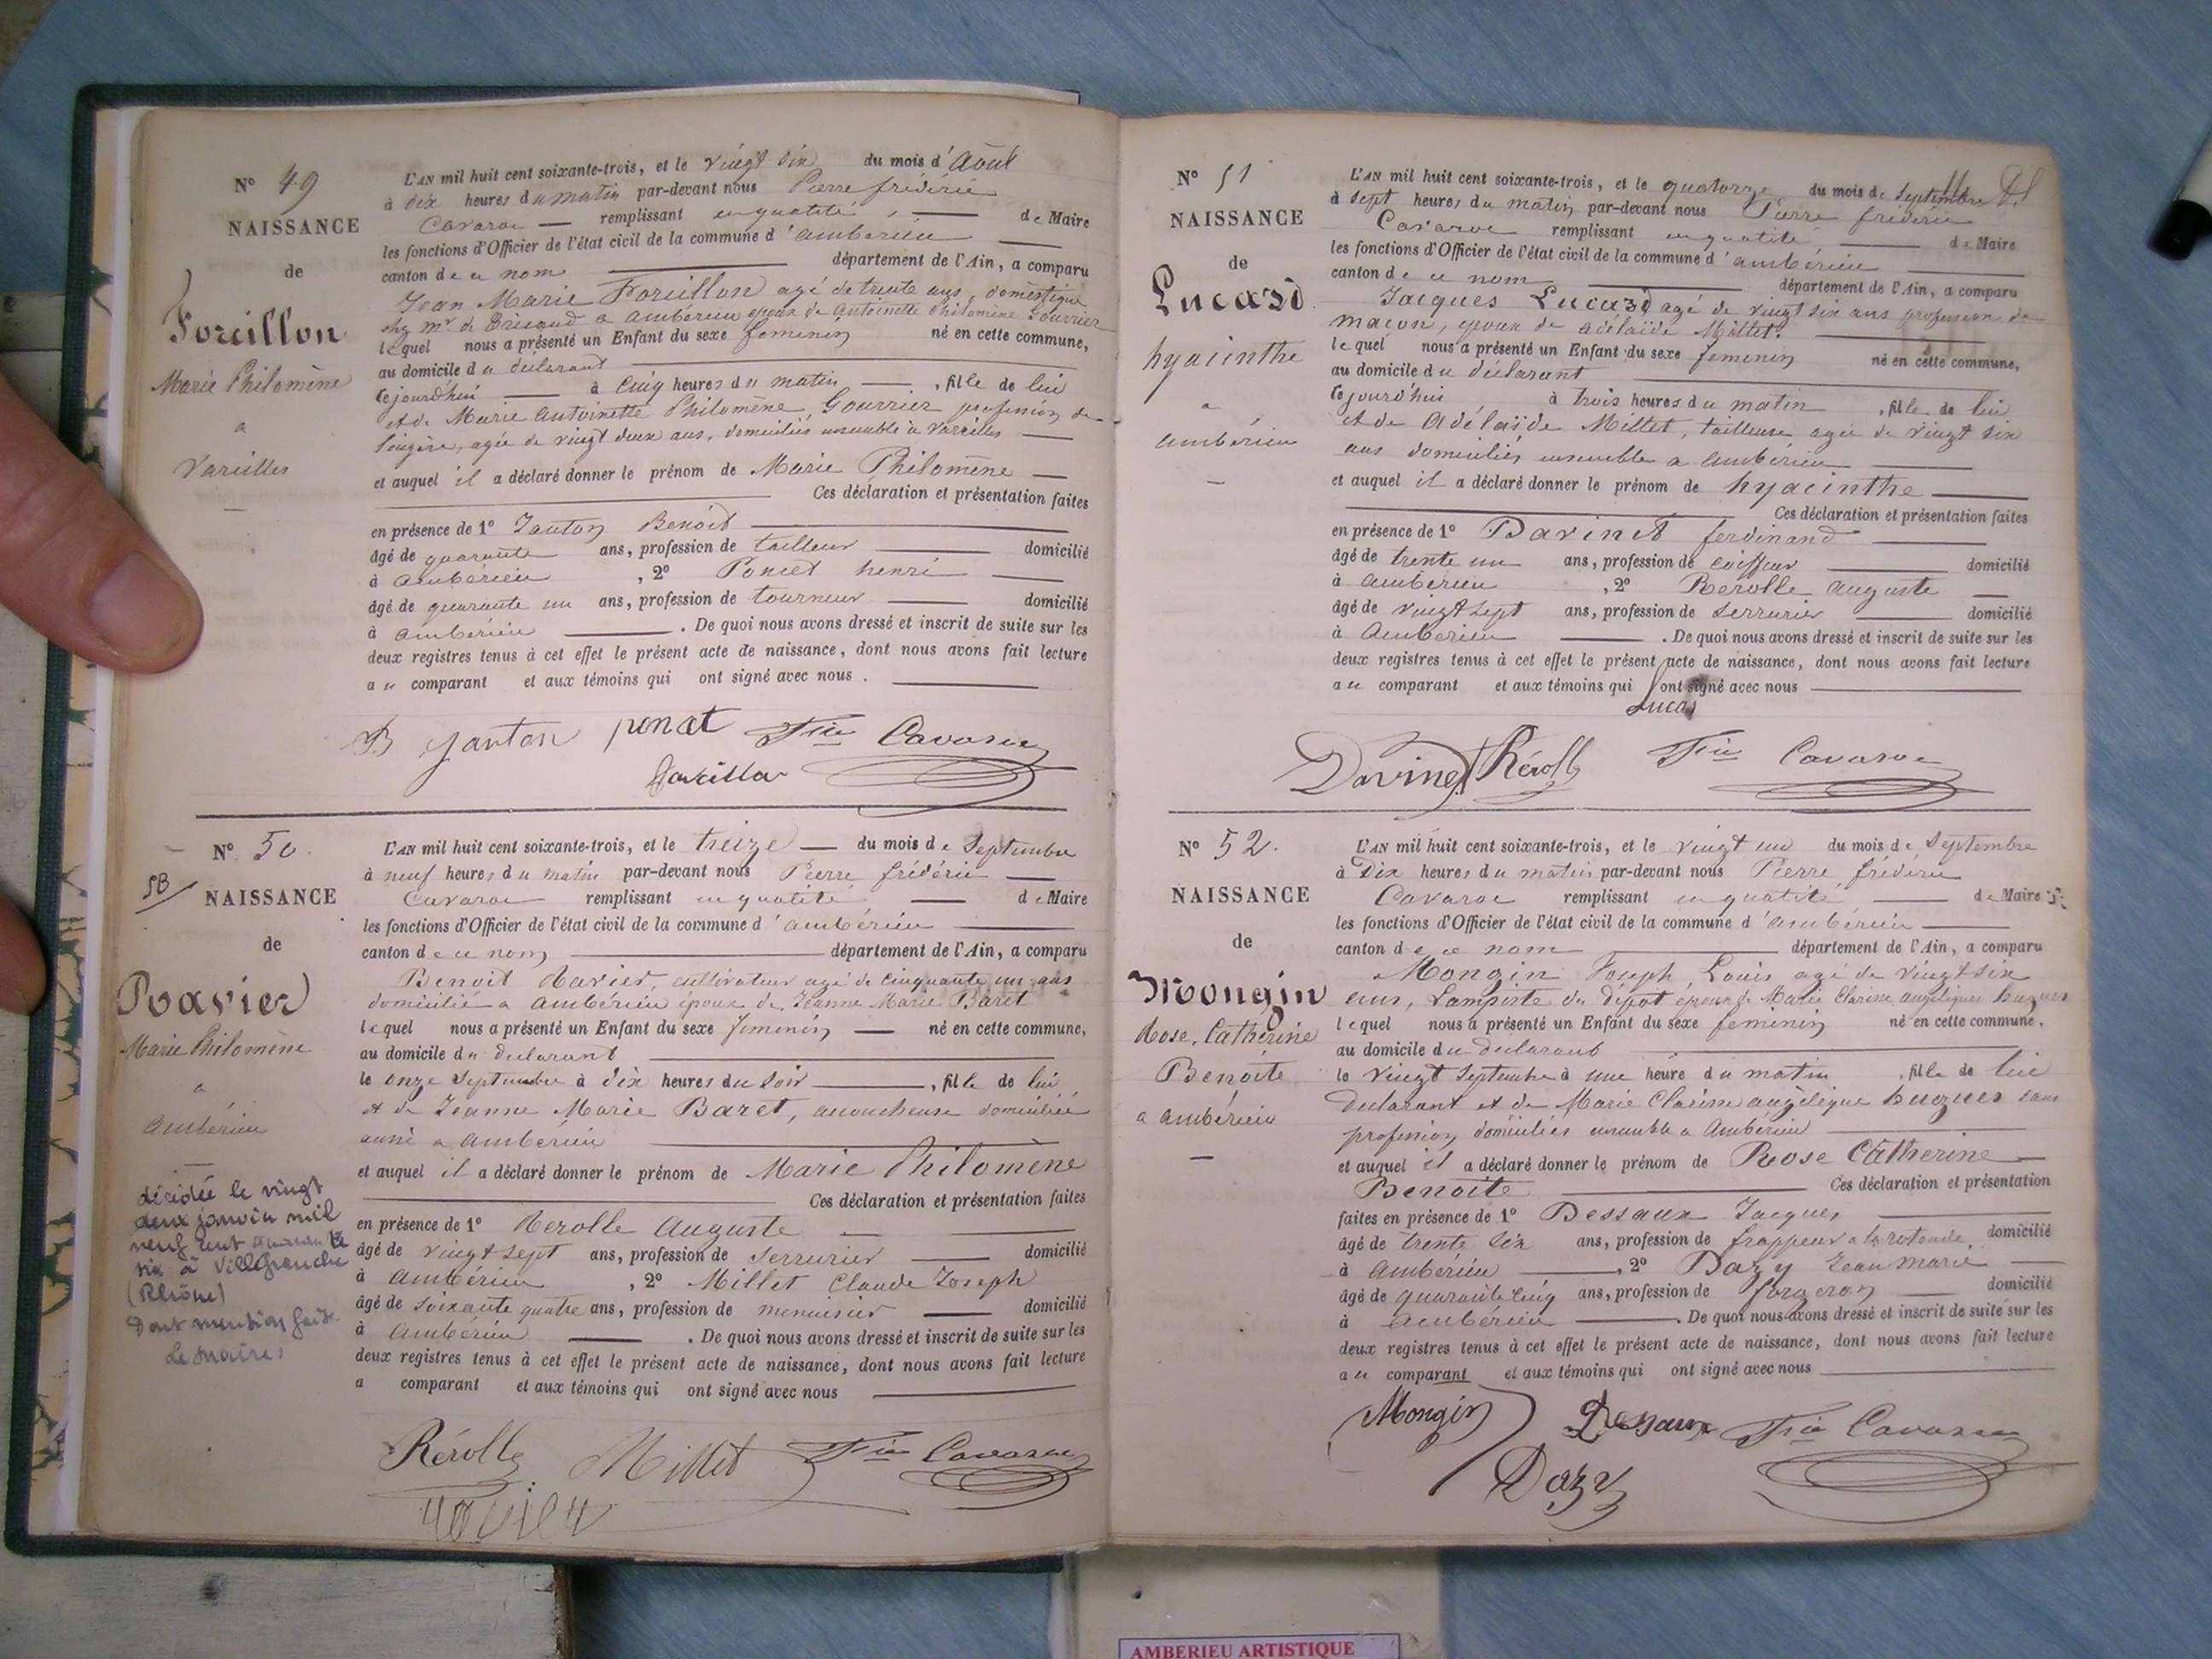 N° 49
NAISSANCE
de
Foreillon
Marie Philomène
a
Vareilles
L'AN mil huit cent soixante-trois, et le vingt six du mois d'Août
à dix heures du matin par-devant nous Pierre frédéric
Cavaroc remplissant en qualité de Maire
les fonctions d'Officier de l'état civil de la commune d'ambérieu
canton de ce nom département de l'Ain, a comparu
Jean Marie Foreillon agé de trente ans, domestique
chez mr de a ambérieu epoux de Antoinette Philomène Gourrier
lequel nous a présenté un Enfant du sexe feminin né en cette commune,
au domicile du déclarant
cejourd'hui à cinq heures du matin, fille de lui
et de Marie Antoinette Philomène Gourrier profession de
lingère, agée de vingt deux ans, domiciliés ensemble à Vareilles
et auquel il a déclaré donner le prénom de Marie Philomène
Ces déclaration et présentation faites
en présence de 1° Janton Benoit
âgé de quarante ans, profession de tailleur domicilié
à ambérieu, 2° Poncet henri
âgé de quarante un ans, profession de tourneur domicilié
à ambérieu. De quoi nous avons dressé et inscrit de suite sur les
deux registres tenus à cet effet le présent acte de naissance, dont nous avons fait lecture
au comparant et aux témoins qui ont signé avec nous.
B Janton ponct Fic Cavaroc
foreillon
N° 50
58
NAISSANCE
de
Ravier
Marie Philomène
a
Ambérieu
décédée le vingt
deux janvier mil
neuf cent quarante
six à Villefranche
(Rhône)
Dont mention faite
Le Maire
L'AN mil huit cent soixante-trois, et le treize du mois de Septembre
à neuf heures du matin par-devant nous Pierre frédéric
Cavaroc remplissant en qualité de Maire
les fonctions d'Officier de l'état civil de la commune d'ambérieu
canton de ce nom département de l'Ain, a comparu
Benoit Ravier, cultivateur agé de cinquante un ans
domicilié a ambérieu epoux de Jeanne Marie Baret
lequel nous a présenté un Enfant du sexe feminin né en cette commune,
au domicile du declarant
le onze Septembre à dix heures du soir, fille de lui
et de Jeanne Marie Baret, accoucheuse domiciliée
aussi a ambérieu
et auquel il a déclaré donner le prénom de Marie Philomène
Ces déclaration et présentation faites
en présence de 1° Rerolle Auguste
âgé de vingt sept ans, profession de serrurier domicilié
à Ambérieu, 2° Millet Claude Joseph
âgé de soixante quatre ans, profession de menuisier domicilié
à Ambérieu. De quoi nous avons dressé et inscrit de suite sur les
deux registres tenus à cet effet le présent acte de naissance, dont nous avons fait lecture
a comparant et aux témoins qui ont signé avec nous
Rérolle Millet Fic Cavaroc
ravier
N° 51
NAISSANCE
de
Lucard
hyacinthe
a
ambérieu
L'AN mil huit cent soixante-trois, et le quatorze du mois de Septembre
à sept heures du matin par-devant nous Pierre frédéric
Cavaroc remplissant en qualité de Maire
les fonctions d'Officier de l'état civil de la commune d'ambérieu
canton de ce nom département de l'Ain, a comparu
Jacques Lucard agé de vingt six ans profession de
maçon, epoux de adélaïde Millet.
lequel nous a présenté un Enfant du sexe feminin né en cette commune,
au domicile du déclarant
cejourd'hui à trois heures du matin, fille de lui
et de Adélaïde Millet, tailleuse agée de vingt six
ans domiciliés ensemble a ambérieu
et auquel il a déclaré donner le prénom de hyacinthe
Ces déclaration et présentation faites
en présence de 1° Davinet ferdinand
âgé de trente un ans, profession de coiffeur domicilié
à ambérieu, 2° Rerolle auguste
âgé de vingt sept ans, profession de serrurier domicilié
à Ambérieu. De quoi nous avons dressé et inscrit de suite sur les
deux registres tenus à cet effet le présent acte de naissance, dont nous avons fait lecture
au comparant et aux témoins qui ont signé avec nous
Lucas
Davinet Rérolle Fic Cavaroc
N° 52.
NAISSANCE
de
Mongin
Rose, Catherine
Benoite
a ambérieu
L'AN mil huit cent soixante-trois, et le vingt un du mois de Septembre
à Dix heures du matin par-devant nous Pierre frédéric
Cavaroc remplissant en qualité de Maire
les fonctions d'Officier de l'état civil de la commune d'ambérieu
canton de ce nom département de l'Ain, a comparu
Mongin Joseph Louis agé de vingt six
ans, Lampiste du dépot epoux de Marie Clarisse angélique hugues
lequel nous a présenté un Enfant du sexe feminin né en cette commune,
au domicile du declarant
le vingt Septembre à une heure du matin, fille de lui
declarant et de Marie Clarisse angélique hugues sans
profession domiciliés ensemble a Ambérieu
et auquel il a déclaré donner le prénom de Rose Catherine
Benoite Ces déclaration et présentation
faites en présence de 1° Dessaux Jacques
âgé de trente six ans, profession de frappeur a la rotonde domicilié
à Ambérieu, 2° Dazy Jean marie
âgé de quarante cinq ans, profession de forgeron domicilié
à ambérieu. De quoi nous avons dressé et inscrit de suite sur les
deux registres tenus à cet effet le présent acte de naissance, dont nous avons fait lecture
au comparant et aux témoins qui ont signé avec nous
Mongin Dessaux Fic Cavaroc
Dazy
AMBERIEU ARTISTIQUE